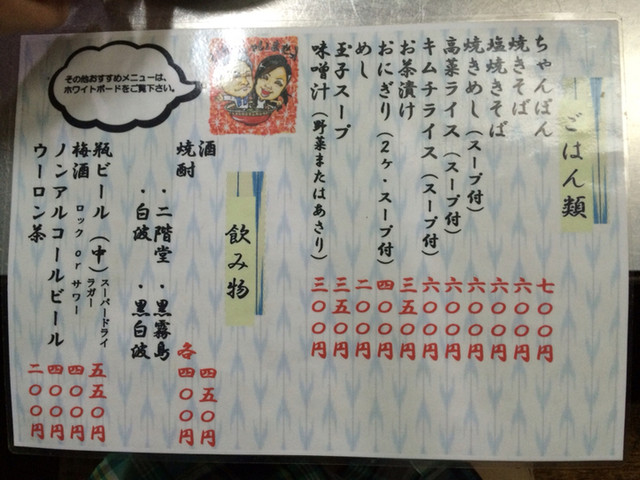 ごはん類
ちゃんぽん 七〇〇円
焼きそば 六〇〇円
塩焼きそば 六〇〇円
焼きめし(スープ付) 六〇〇円
高菜ライス(スープ付) 六〇〇円
キムチライス(スープ付) 六〇〇円
お茶漬け 三五〇円
おにぎり(2ヶ・スープ付) 四〇〇円
めし 二〇〇円
玉子スープ 三五〇円
味噌汁(野菜またはあさり) 三〇〇円
飲み物
酒 四五〇円
焼酎 各四〇〇円
・二階堂 ・黒霧島
・白波 ・黒白波
瓶ビール(中) スーパードライ ラガー 五五〇円
梅酒 ロック or サワー 四〇〇円
ノンアルコールビール 四〇〇円
ウーロン茶 二〇〇円
その他おすすめメニューは、
ホワイトボードをご覧下さい。